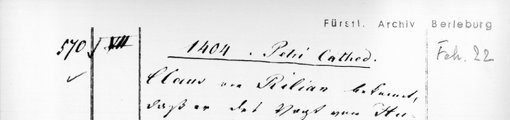 Fürstl. Archiv Berleburg
570 VII 1404. Petri Cathed. Feb. 22
Claus von Kilian bekennt,
daß er des Vogt von